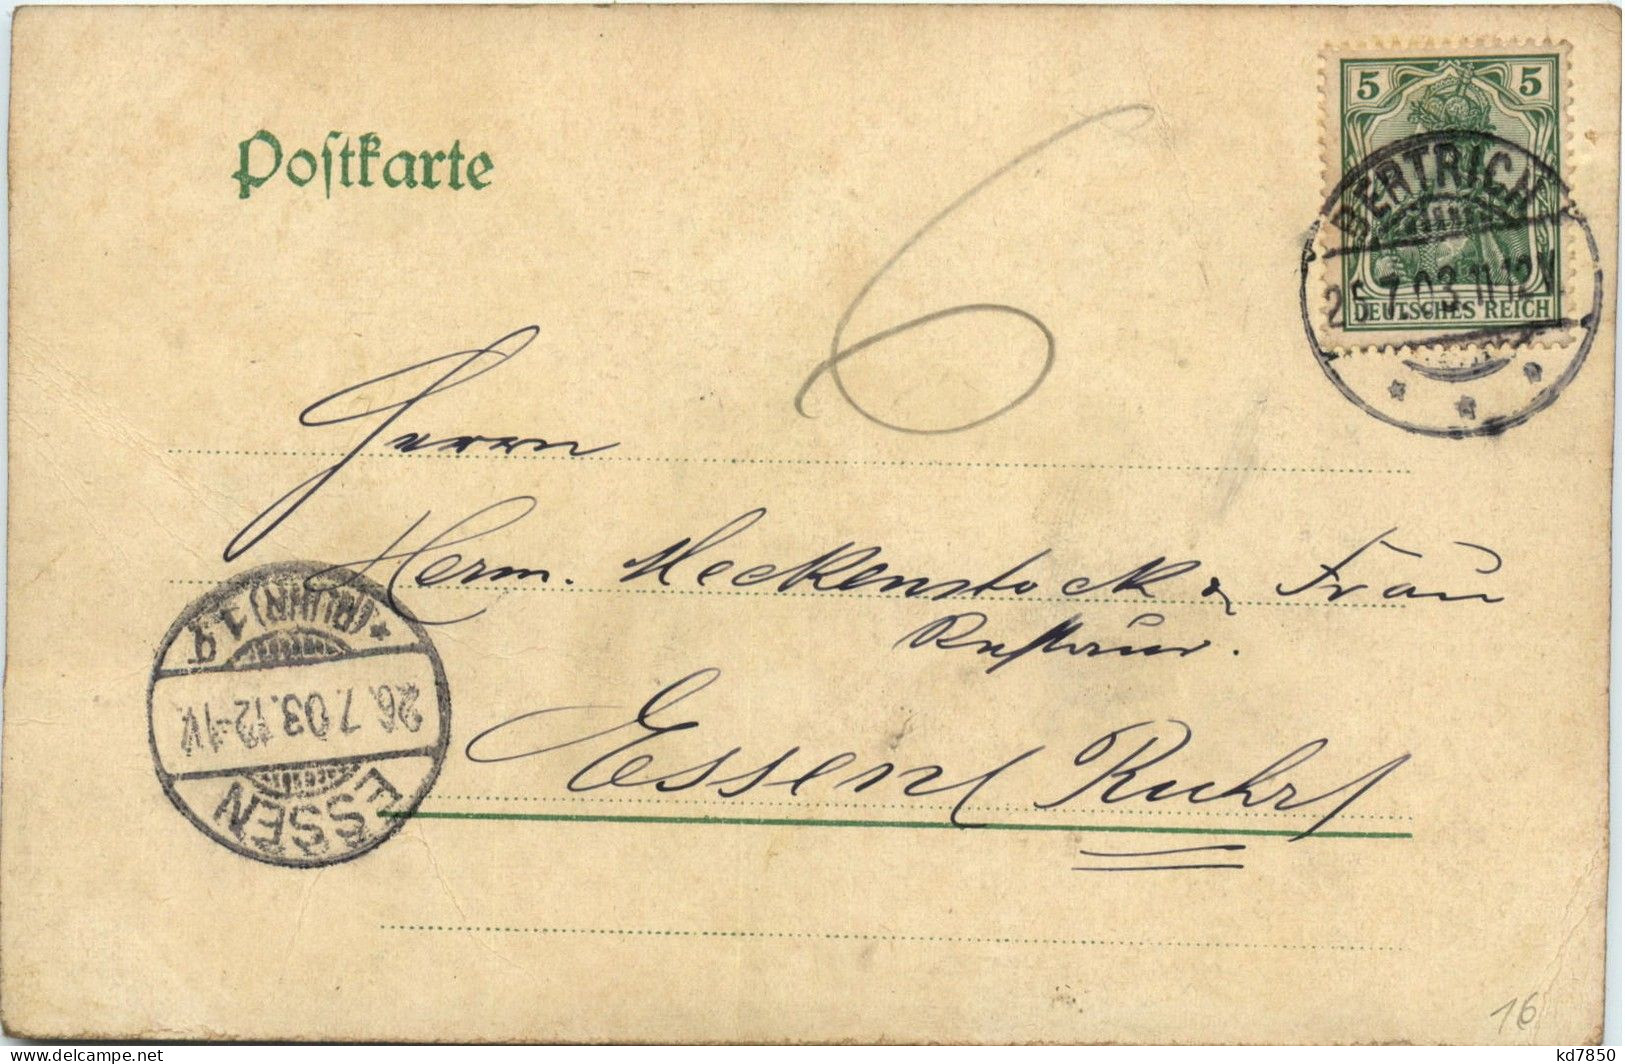 5 5
Poſtkarte
BERTRICH
25.7.03.11-12V.
DEUTSCHES REICH
6
Herrn
Herm. Meckenstock & Frau
Restaur.
Essen/ Ruhr/
* (RUHR) 1 g
26.7.03.12-1V.
ESSEN
16
www.delcampe.net
kd7850